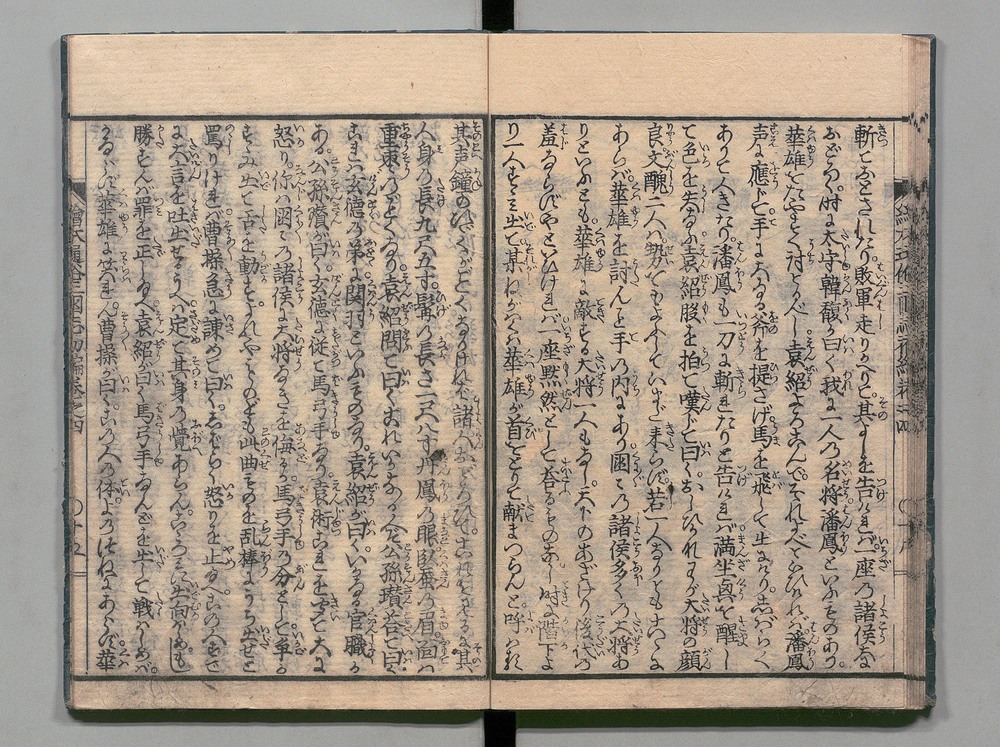 斬おとされたり敗軍走りかへりて其よしを告けれバ一座の諸侯大
おどろく時に太守韓馥が曰く我に一人の名将潘鳳といふものあり
華雄をたやすく討べし袁紹よろこんでそれよべといひけれバ潘鳳
声に應じて手に大なる斧を提さげ馬を飛して出けり志バらく
ありて人きたり潘鳳も一刀に斬れたりと告けれバ満坐興を醒し
て色を失なふ袁紹股を拍て嘆じて曰くおしひかな我が大将の顔
良文醜二人ハ勢ぞろよしていまだ来らず若一人なりともこゝに
あらバ華雄を討んと手の内にあり国〻の諸侯多くの大将あ
りといへども華雄に敵する大将一人もなし天下のあざけり後代の
羞ならずやといひけれバ一座黙然として答るものなし時に階下より
一人すゝミ出て某ねがハくハ華雄が首をとりて献まつらんと呼りけり
其声鐘のひゞくがごとくなりけれバ諸人おどろひてこれをミるに其
人身の長九尺五寸髯の長さ一尺八寸丹鳳の眼臥蚕の眉面ハ
重棗のごとくなり袁紹問て曰くこれいかなる人ぞ公孫瓚答て曰く
これハ玄徳の弟に関羽といふものなり袁紹が曰くいかなる官職か
ある公孫瓚曰く玄徳に従て馬弓手なり袁術これをきいて大に
怒り你ハ国〻の諸侯に大将なきを侮るか馬弓手の分として卒か
すゝミ出て舌を動すそれやつものども此曲ものを乱棒にうち出せと
罵りけれバ曹操急に諫めて曰くしバらく怒りを止めよこの人すで
に大言を吐出せるうへハ定て其身の覚あらんこゝろミに出向ハしめもし
勝ずんバ罪を正し給へ袁紹が曰く馬弓手なんどを出して戦ハしめバ
かならず華雄に笑れん曹操が曰くこの人の体よのつねにあらず華